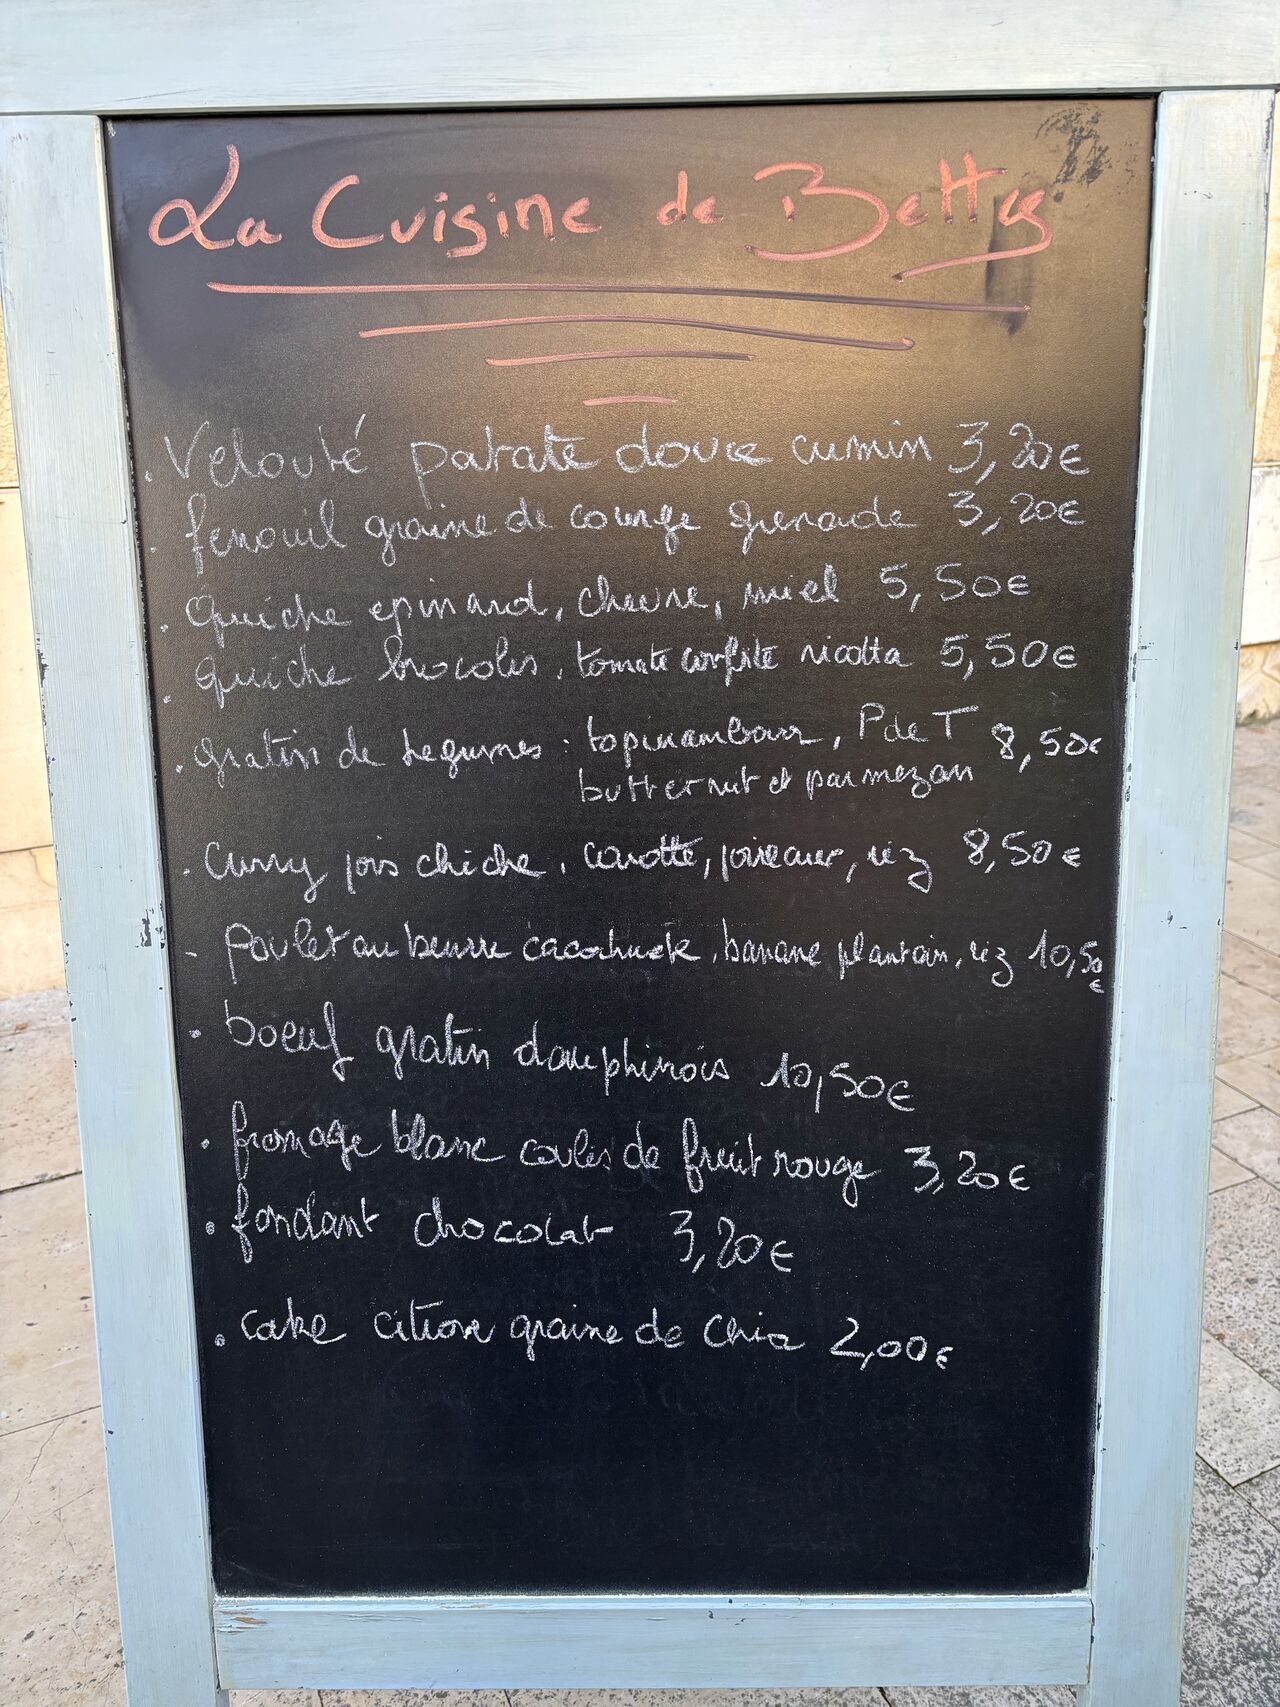 La Cuisine de Bettys
. Velouté patate douce cumin 3,20€
. fenouil graine de courge grenade 3,20€
. Quiche epinard, chevre, miel 5,50€
. quiche brocolis, tomate confite ricotta 5,50€
. gratin de legumes : topinambour, P de T 8,50€
butternut et parmezan
. Curry pois chiche, carotte, poireaux, riz 8,50€
- poulet au beurre cacahuète, banane plantain, riz 10,50€
. boeuf gratin dauphinois 10,50€
. fromage blanc coulis de fruit rouge 3,20€
. fondant chocolat 3,20€
. cake citron graine de chia 2,00€